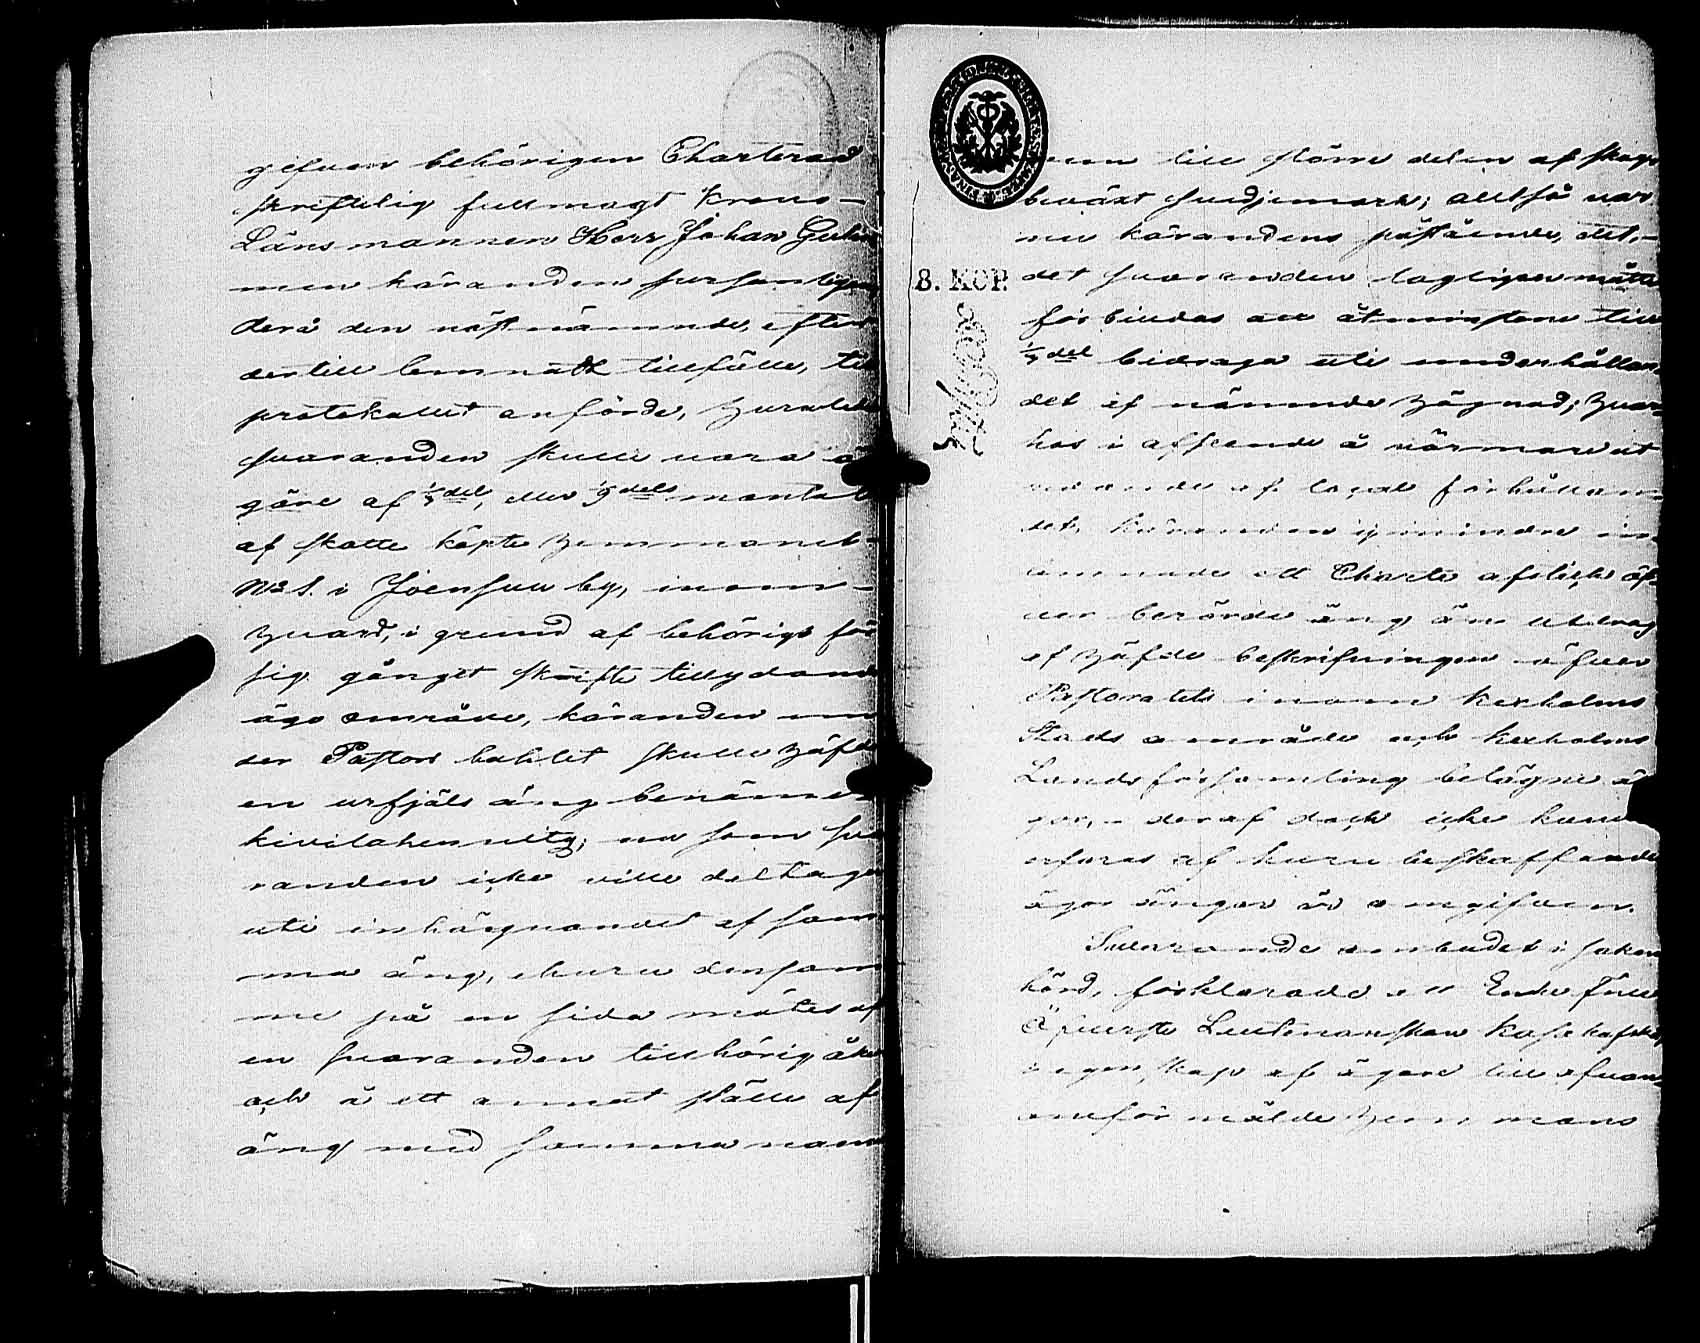 gifven behörigen Charterad
skriftelig fullmagt Krono-
Länsmannen Herr Johan
men käranden personligen
derå den näst nämnde, efter
dertill lemnadt tillfälle, till
protokollet anförde, huruledes
svaranden skulle vara ä
gare af 1/9 del, eller 1/9 dels mantal
af skatte köpte hemmanet
No 1. i Joensuu by, inom
hvard, i grund af behörigt för
sig gånget skifte tillydande
ägo område, käranden un
der Pastors bohlet skulle häfda
en urfjäls äng benämnd
Kivilahennitty, no som sva
randen icke ville deltaga
uti inhägnandet af sam
ma äng, ehuru densam
me på en sida mötes af
en svaranden tillhörig åker
och å ett annat ställe af
äng med samma namn
men till större delen af skog
beväxt svedjemark; alltså var
nu kärandens påstående, att
det svaranden lagligen måtte
8. KOP.
förbindas att åtminstone till
1/9 del bidraga uti underhållan
det af nämnde hägnad; hvar
hos i afseende å närmare ut
redande af lagde förhållan
det, käranden ej mindre in
lemnade ett Charte afslick öf
ver berörde äng än utdrag
af häfde beskrifningen öfver
Pastoratets inom Kexholms
Stads område och Kexholms
Landsförsamling belägne ä
gor, deraf dock icke kunde
erfaras af huru beskaffande
ägor ängen är omgifven.
Svarande ombudet i saken
hörd, förklarade att Enke Frue
Öfverste Leutenantskan
i egenskap af ägare till ofvan
anförmälde hemmans